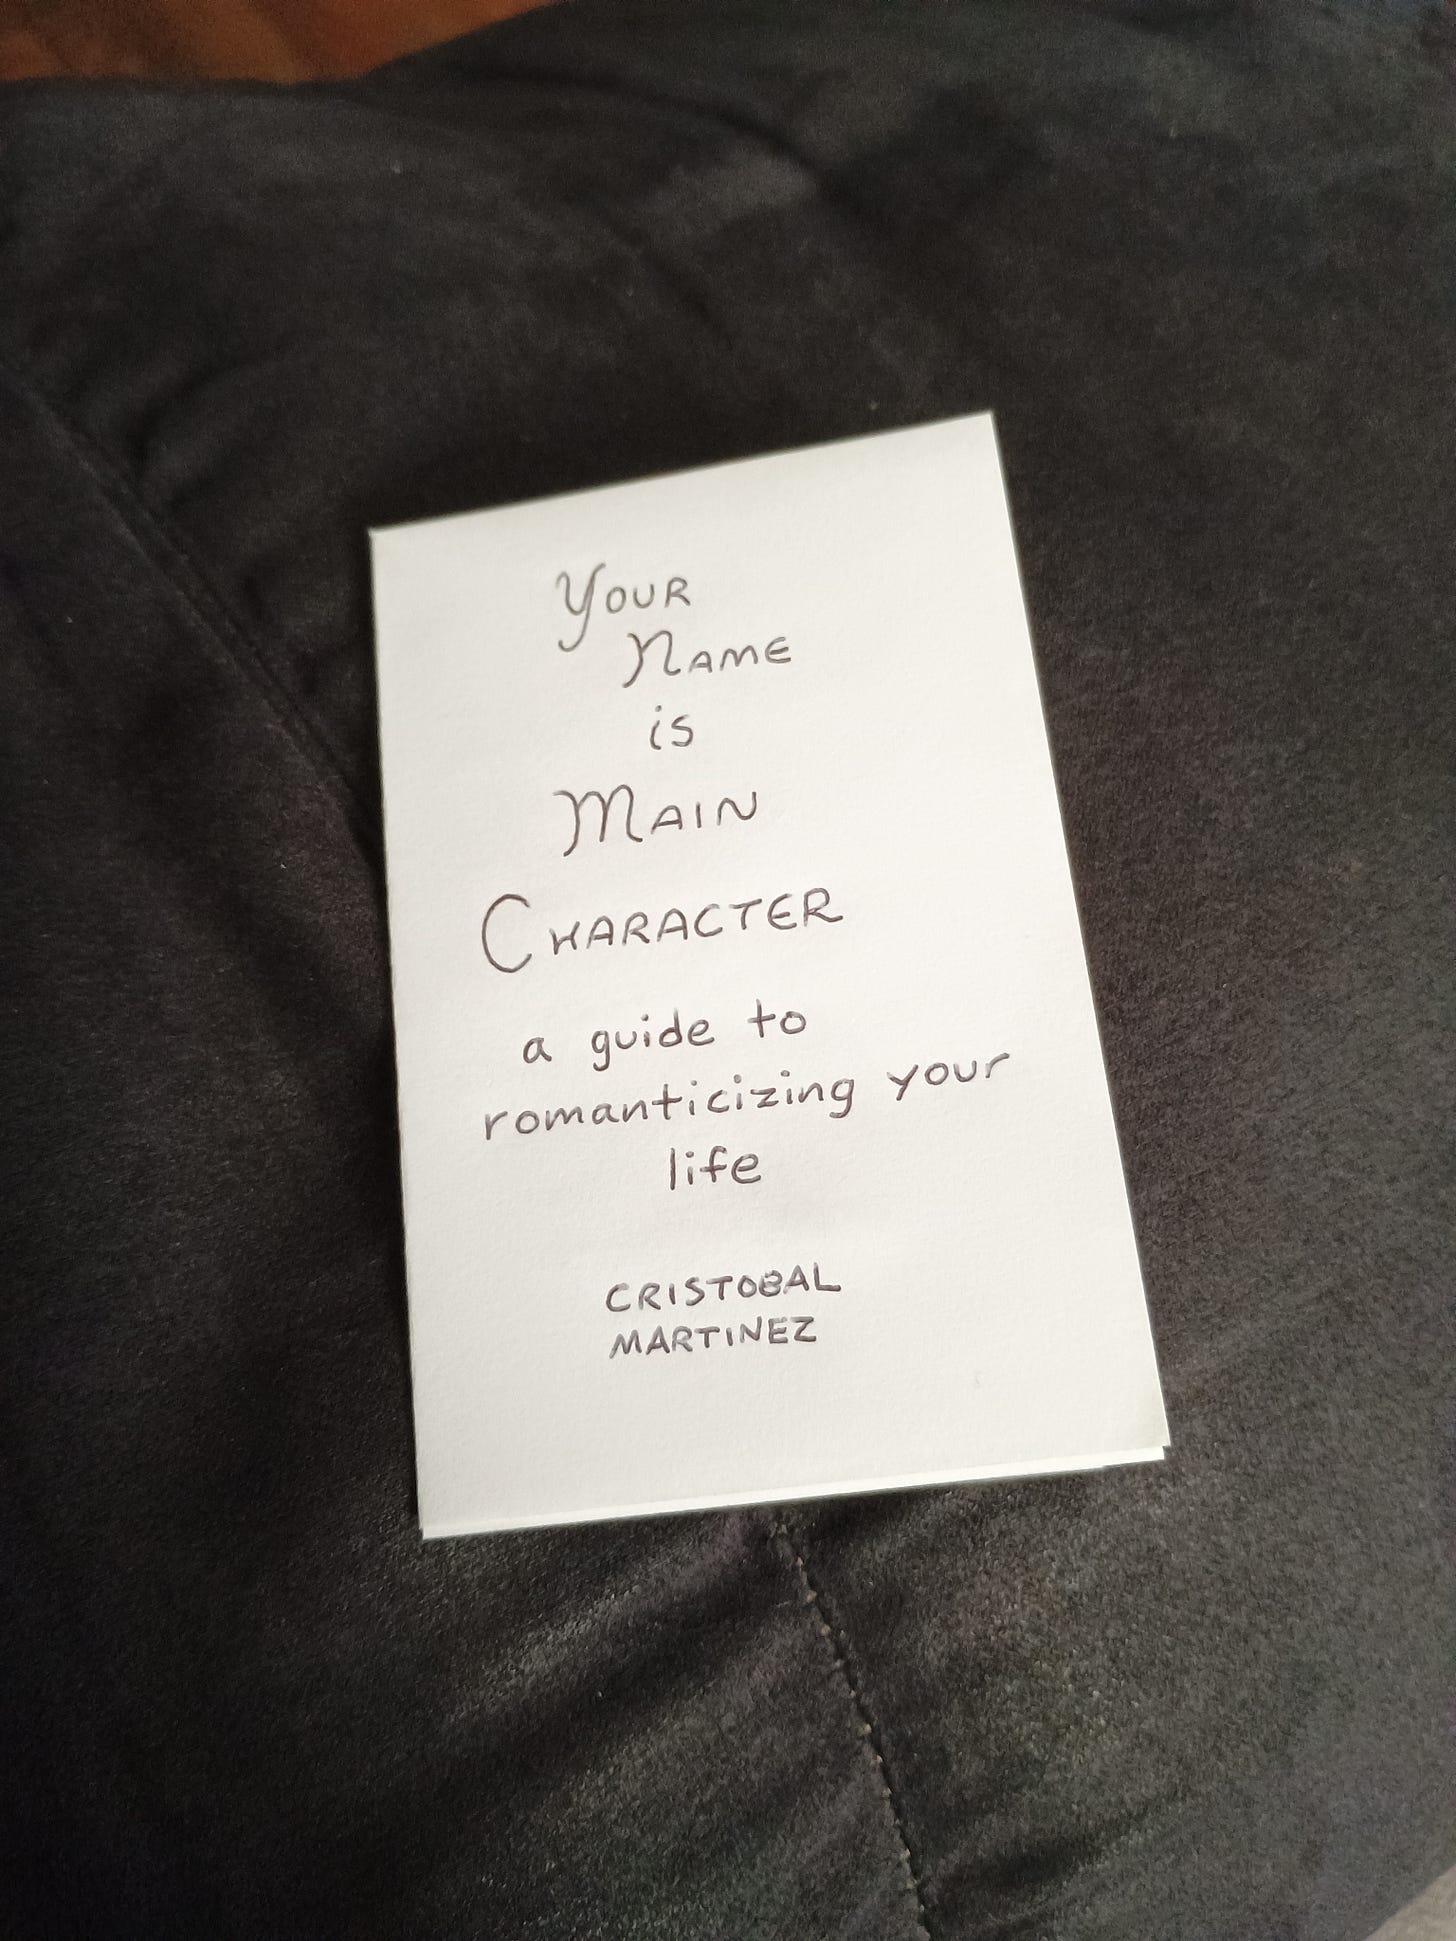 YOUR
NAME
is
MAIN
CHARACTER
a guide to
romanticizing your
life
CRISTOBAL
MARTINEZ